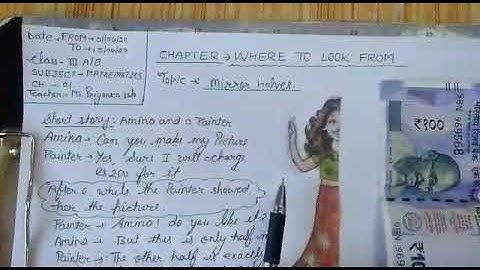 Date, FROM → 01/04/20
TO → 15/04/20
Class- III A/B
SUBJECT → MATHEMATICS
CH. → 01
Teacher → Ms. Priyanka
CHAPTER → WHERE TO LOOK FROM
Topic → Mirror halves.
Short story: Amina and a Painter
Amina → Can you make my Picture
Painter → Yes, Sure I will charge
Rs.200 for it
After a while the Painter showed
her the picture.
Painter → Amina! do you like it?
Amina → But this is only half
Painter: The other half is exactly
9BN 969568
₹100
9BN 969